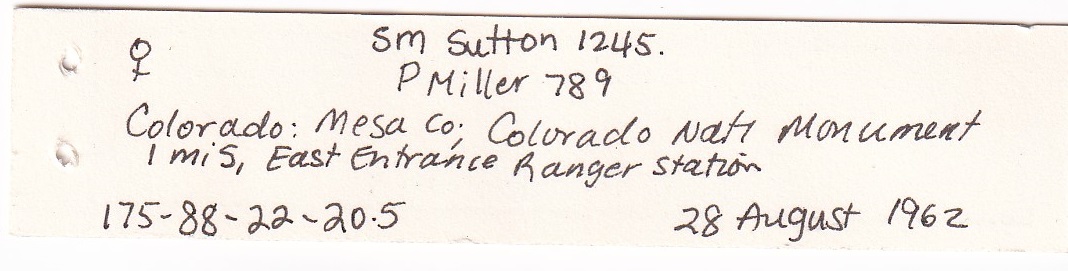 ♀ SM Sutton 1245.
P Miller 789
Colorado: Mesa Co; Colorado Nat'l Monument
1 mi S, East Entrance Ranger Station
175-88-22-20.5 28 August 1962